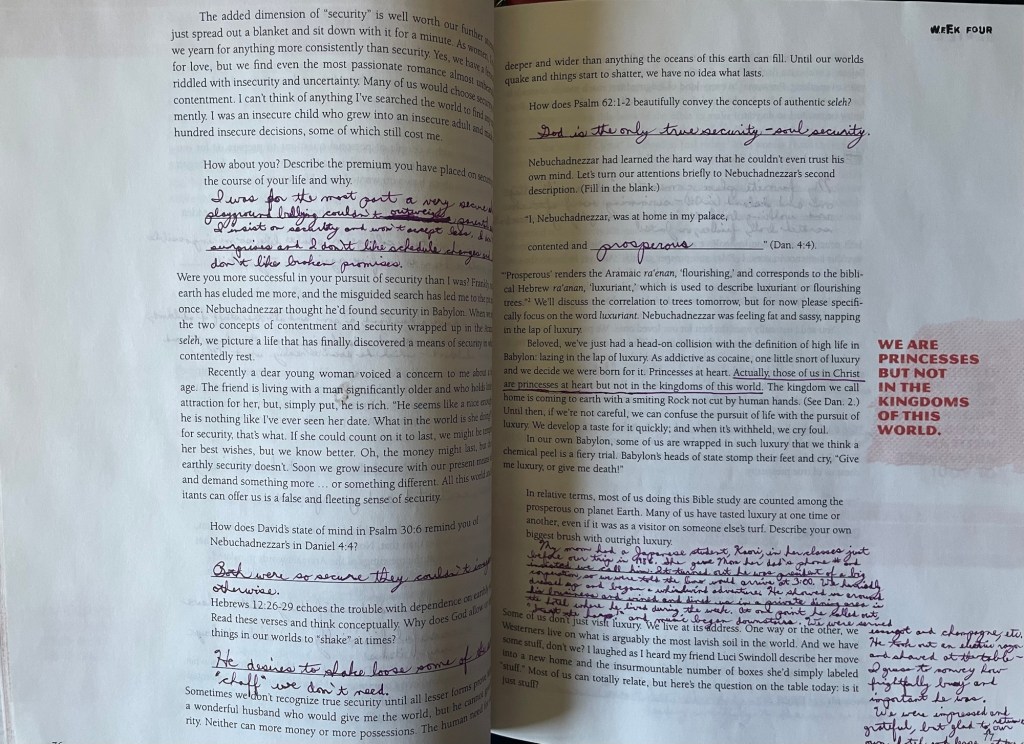 The added dimension of "security" is well worth our further
just spread out a blanket and sit down with it for a minute. As women,
we yearn for anything more consistently than security. Yes, we have a
for love, but we find even the most passionate romance almost
riddled with insecurity and uncertainty. Many of us would choose
contentment. I can't think of anything I've searched the world to find
mently. I was an insecure child who grew into an insecure adult and
hundred insecure decisions, some of which still cost me.
How about you? Describe the premium you have placed on
the course of your life and why.
I was for the most part a very secure
playground bullying couldn't outweigh
I insist on security and won't accept less.
surprises and I don't like schedule changes
don't like broken promises.
Were you more successful in your pursuit of security than I was?
earth has eluded me more, and the misguided search has led me to
once. Nebuchadnezzar thought he'd found security in Babylon. When
the two concepts of contentment and security wrapped up in the
seleh, we picture a life that has finally discovered a means of security
contentedly rest.
Recently a dear young woman voiced a concern to me about
age. The friend is living with a man significantly older and who holds
attraction for her, but, simply put, he is rich. "He seems like a nice
he is nothing like I've ever seen her date. What in the world is she
for security, that's what. If she could count on it to last, we might
her best wishes, but we know better. Oh, the money might last, but
earthly security doesn't. Soon we grow insecure with our present
and demand something more ... or something different. All this world
itants can offer us is a false and fleeting sense of security.
How does David's state of mind in Psalm 30:6 remind you of
Nebuchadnezzar's in Daniel 4:4?
Both were so secure they couldn't
otherwise.
Hebrews 12:26-29 echoes the trouble with dependence on
Read these verses and think conceptually. Why does God allow
things in our worlds to "shake" at times?
He desires to shake loose some of
"chaff" we don't need.
Sometimes we don't recognize true security until all lesser forms
a wonderful husband who would give me the world, but he cannot
rity. Neither can more money or more possessions. The human
WEEK FOUR
deeper and wider than anything the oceans of this earth can fill. Until our worlds
quake and things start to shatter, we have no idea what lasts.
How does Psalm 62:1-2 beautifully convey the concepts of authentic seleh?
God is the only true security – soul security.
Nebuchadnezzar had learned the hard way that he couldn't even trust his
own mind. Let's turn our attentions briefly to Nebuchadnezzar's second
description. (Fill in the blank.)
"I, Nebuchadnezzar, was at home in my palace,
contented and prosperous " (Dan. 4:4).
"'Prosperous' renders the Aramaic ra'enan, 'flourishing,' and corresponds to the bibli-
cal Hebrew ra'anan, 'luxuriant,' which is used to describe luxuriant or flourishing
trees."² We'll discuss the correlation to trees tomorrow, but for now please specifi-
cally focus on the word luxuriant. Nebuchadnezzar was feeling fat and sassy, napping
in the lap of luxury.
Beloved, we've just had a head-on collision with the definition of high life in
Babylon: lazing in the lap of luxury. As addictive as cocaine, one little snort of luxury
and we decide we were born for it. Princesses at heart. Actually, those of us in Christ
are princesses at heart but not in the kingdoms of this world. The kingdom we call
home is coming to earth with a smiting Rock not cut by human hands. (See Dan. 2.)
Until then, if we're not careful, we can confuse the pursuit of life with the pursuit of
luxury. We develop a taste for it quickly; and when it's withheld, we cry foul.
In our own Babylon, some of us are wrapped in such luxury that we think a
chemical peel is a fiery trial. Babylon's heads of state stomp their feet and cry, "Give
me luxury, or give me death!"
WE ARE
PRINCESSES
BUT NOT
IN THE
KINGDOMS
OF THIS
WORLD.
In relative terms, most of us doing this Bible study are counted among the
prosperous on planet Earth. Many of us have tasted luxury at one time or
another, even if it was as a visitor on someone else's turf. Describe your own
biggest brush with outright luxury.
My mom had a Japanese student, Kaori, in her classes just
before our trip in She gave Mom her dad's phone # and
insisted we call him. It turned out he was president of a big
so we were told the limo would arrive at 3:00. We hurriedly
dressed up and began a whirlwind adventure. He showed us around
his business and wined and dined us in a private dining area in
the hotel where he lives during the week. At one point he called out,
and music began downstairs. We were served
escargot and champagne, etc.
He took out an electric razor
and shaved at the table –
I guess to convey how
frightfully busy and
important he was.
We were impressed and
grateful, but glad to return to our
Some of us don't just visit luxury. We live at its address. One way or the other, we
Westerners live on what is arguably the most lavish soil in the world. And we have
some stuff, don't we? I laughed as I heard my friend Luci Swindoll describe her move
into a new home and the insurmountable number of boxes she'd simply labeled
"stuff." Most of us can totally relate, but here's the question on the table today: is it
just stuff?